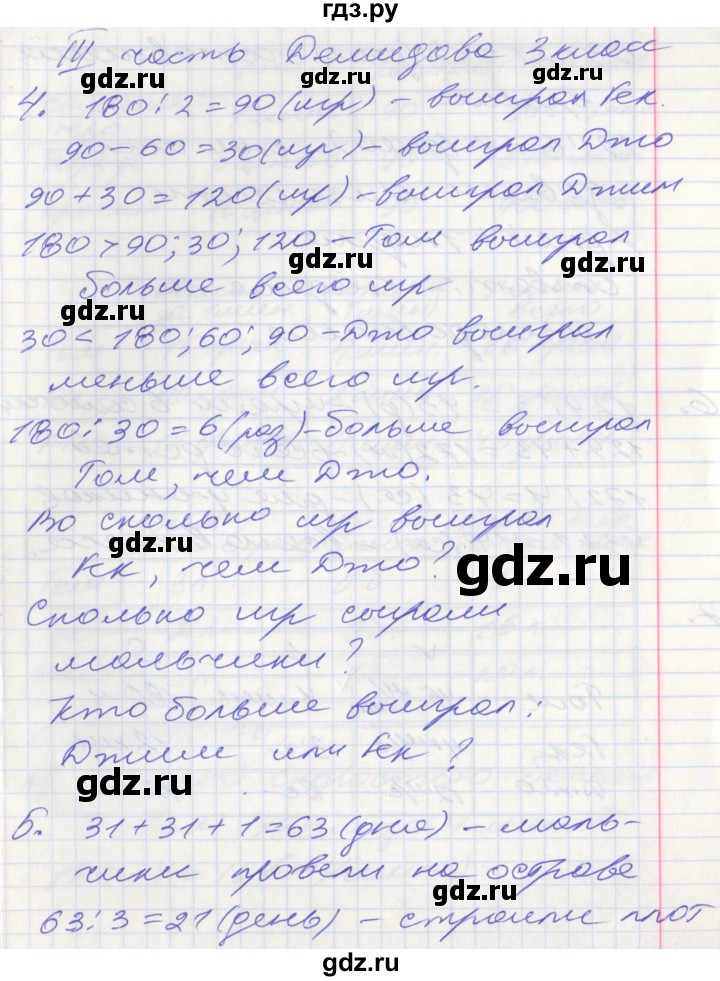 гдз.ру
III часть Демидова 3 класс
gdz.ru gdz.ru
4. 180 : 2 = 90 (игр) – выиграл Гек.
90 – 60 = 30 (игр) – выиграл Джо
gdz.ru gdz.ru
90 + 30 = 120 (игр) – выиграл Джим
180 > 90; 30; 120 – Том выиграл
gdz.ru gdz.ru
больше всего игр
gdz.ru
30 < 180; 60; 90 – Джо выиграл
gdz.ru
меньше всего игр.
gdz.ru
180 : 30 = 6 (раз) – больше выиграл
gdz.ru
Том, чем Джо.
Во сколько игр выиграл
gdz.ru
Гек, чем Джо?
gdz.ru
Сколько игр сыграли
мальчики?
Кто больше выиграл:
Джим или Гек?
gdz.ru
5. 31 + 31 + 1 = 63 (дня) – маль-
чики провели на острове
gdz.ru
63 : 3 = 21 (день) – строили плот
gdz.ru
gdz.ru